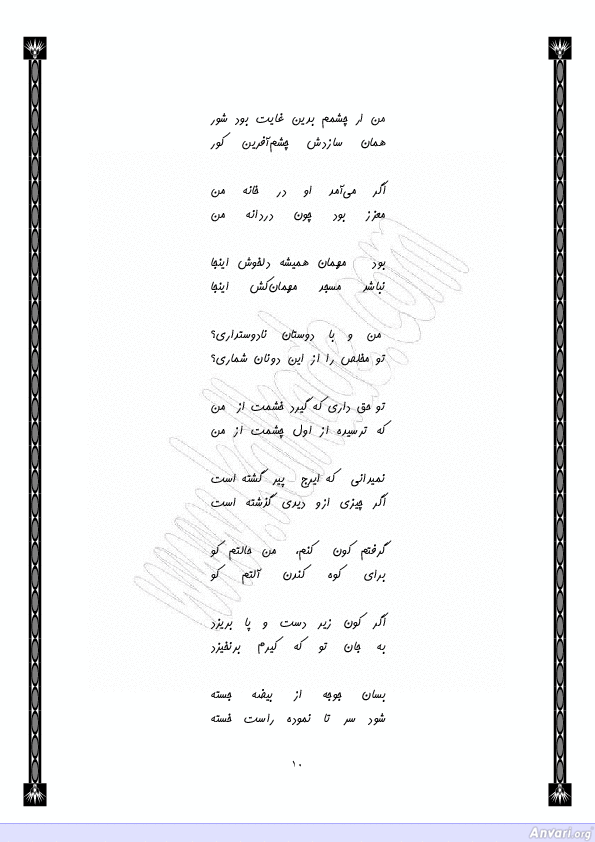 من ار چشمم بدین غایت بود شور
همان سازدش چشم‌آفرین کور
اگر می‌آمد او در خانه من
معزز بود چون دردانه من
بود مهمان همیشه دلخوش اینجا
نباشد مسجد مهمان‌کش اینجا
من و با دوستان نادوستداری؟
تو مخلص را از این دونان شماری؟
تو حق داری که گیرد خشمت از من
که ترسیده از اول چشمت از من
نمیدانی که ایرج پیر گشته است
اگر چیزی ازو دیدی گذشته است
گرفتم کون کنم، من حالتم کو
برای کوه کندن آلتم کو
اگر کون زیر دست و پا بریزد
به جان تو که کیرم برنخیزد
بسان جوجه از بیضه جسته
شود سر تا نموده راست خسته
۱۰
www.ketabnak.com
Anvari.org